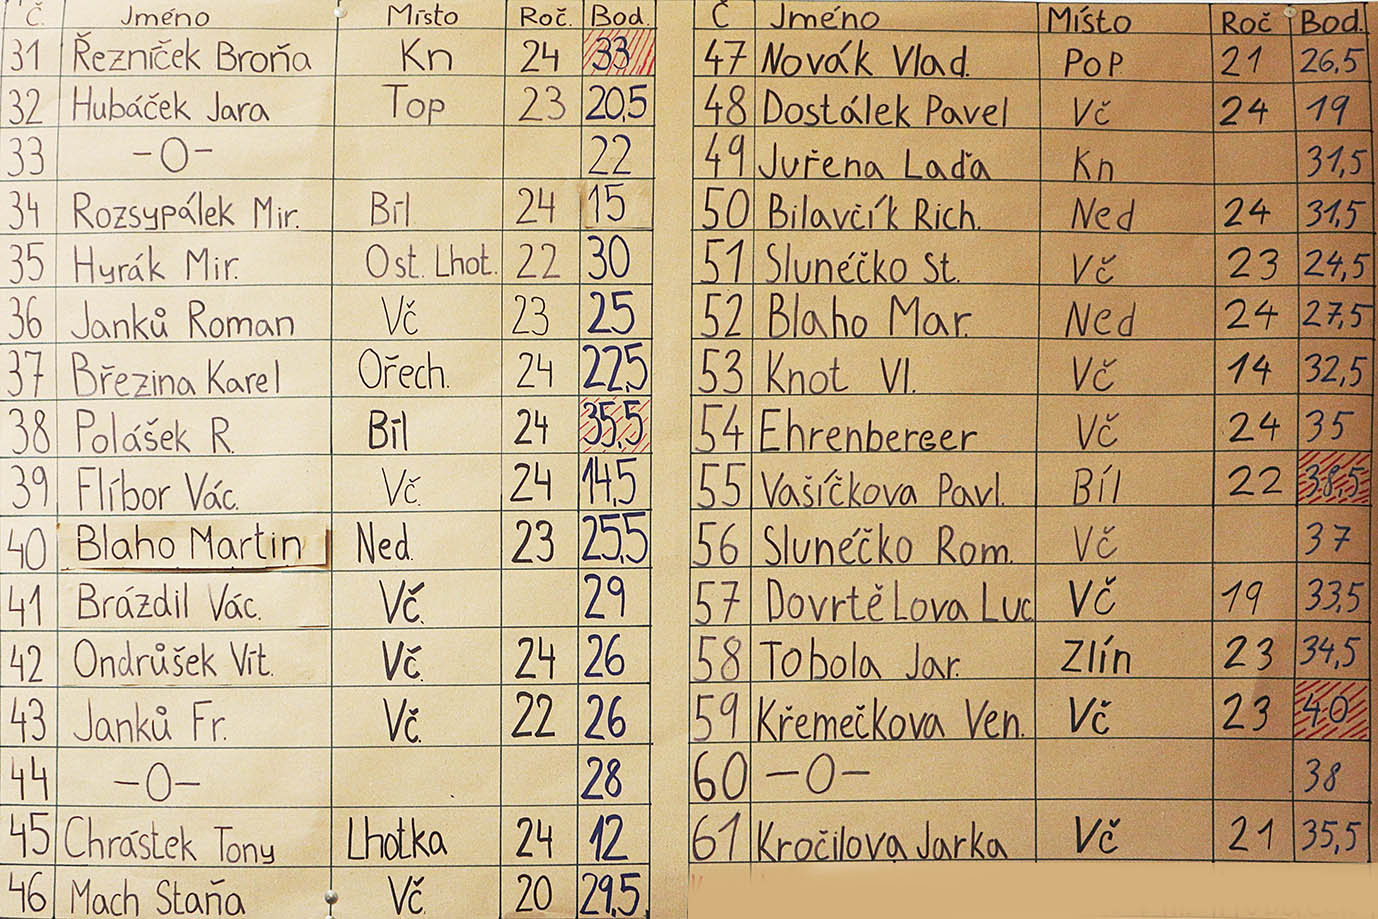 Č. Jméno Místo Roč. Bod.
31 Řezníček Broňa Kn 24 33
32 Hubáček Jara Top 23 20,5
33 –O– 22
34 Rozsypálek Mir. Bíl. 24 15
35 Hyrák Mir. Ost. Lhot. 22 30
36 Janků Roman Vč 23 25
37 Březina Karel Ořech. 24 22,5
38 Polášek R. Bíl 24 35,5
39 Flíbor Vác. Vč. 24 14,5
40 Blaho Martin Ned. 23 25,5
41 Brázdil Vác. Vč. 29
42 Ondrůšek Vít. Vč. 24 26
43 Janků Fr. Vč. 22 26
44 –O– 28
45 Chrástek Tony Lhotka 24 12
46 Mach Staňa Vč. 20 29,5
Č Jméno Místo Roč Bod.
47 Novák Vlad. Pop. 21 26,5
48 Dostálek Pavel Vč 24 19
49 Juřena Laďa Kn 31,5
50 Bilavčík Rich. Ned 24 31,5
51 Slunéčko St. Vč 23 24,5
52 Blaho Mar. Ned 24 27,5
53 Knot Vl. Vč 14 32,5
54 Ehrenberger Vč 24 35
55 Vašíčkova Pavl. Bíl 22 38,5
56 Slunéčko Rom. Vč 37
57 Dovrtělova Luc Vč 19 33,5
58 Tobola Jar. Zlín 23 34,5
59 Křemečkova Ven. Vč 23 40
60 –O– 38
61 Kročilova Jarka Vč 21 35,5